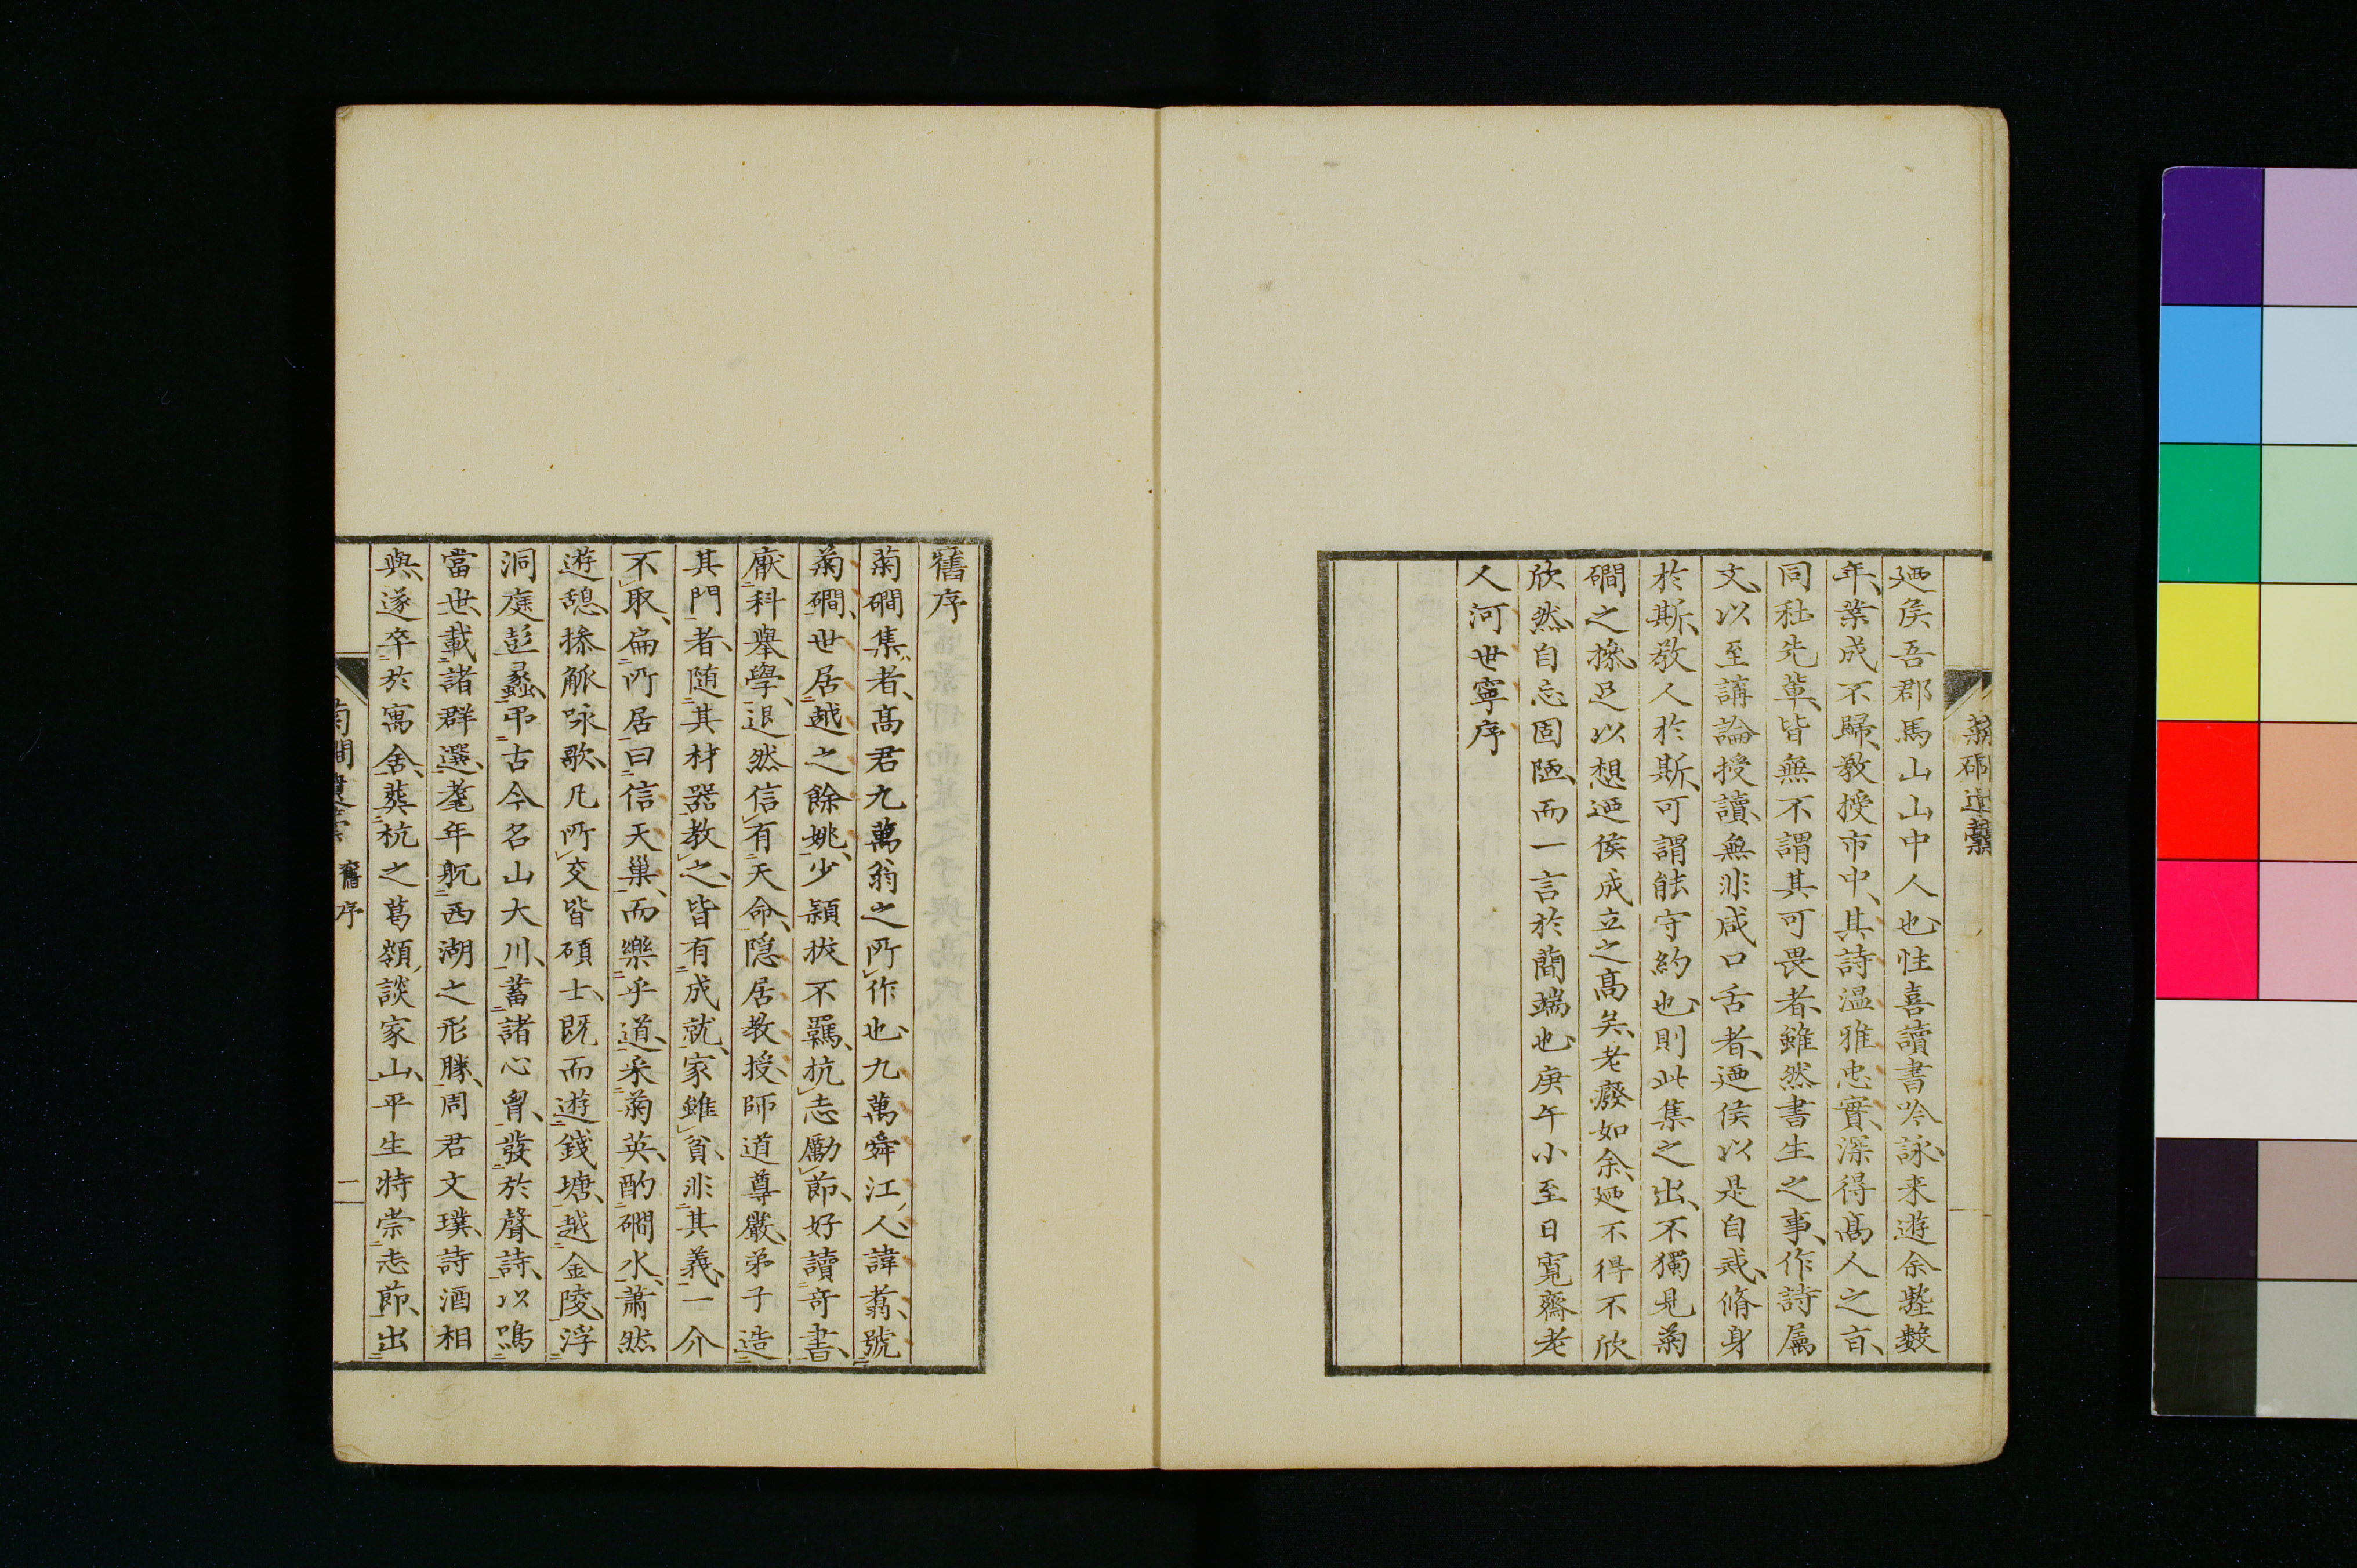 菊磵遺藁
廼侯吾郡馬山山中人也性喜讀書吟詠来遊余塾数
年業成不歸教授市中其詩温雅忠實深得髙人之㫖
同社先輩皆無不謂其可畏者雖然書生之事作詩属
文以至講論授讀無非咸口舌者廼侯以是自戒脩身
於斯教人於斯可謂能守約也則此集之出不獨見菊
磵之操足以想廼侯成立之髙矣老癈如余廼不得不欣
欣然自忘固陋而一言於簡端也庚午小至日寛齋老
人河世寧序
舊序
菊磵集者髙君九萬翁之所作也九萬舜江人諱翥號
菊磵世居越之餘姚少頴拔不羈抗志勵節好讀竒書
厭科舉學退然信有天命隠居教授師道尊嚴弟子造
其門者随其材器教之皆有成就家雖貧非其義一介
不取扁所居曰信天巢而樂乎道采菊英酌磵水蕭然
遊憩摻觚咏歌凡所交皆碩士既而遊錢塘越金陵浮
洞庭彭蠡弔古今名山大川蓄諸心胷發於聲詩以鳴
當世載諸群選耄年翫西湖之形勝周君文璞詩酒相
與遂卒於寓舍葬杭之葛嶺談家山平生特崇志節出
菊磵遺藁 舊序 一